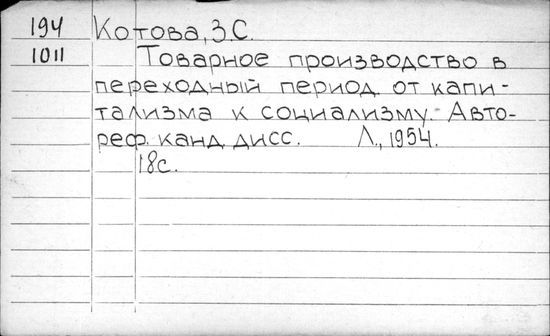 194 Котова, З.С.
1011 Товарное производство в
переходный период от капи-
тализма к социализму. Авто-
реф. канд. дисс. Л., 1954.
18с.